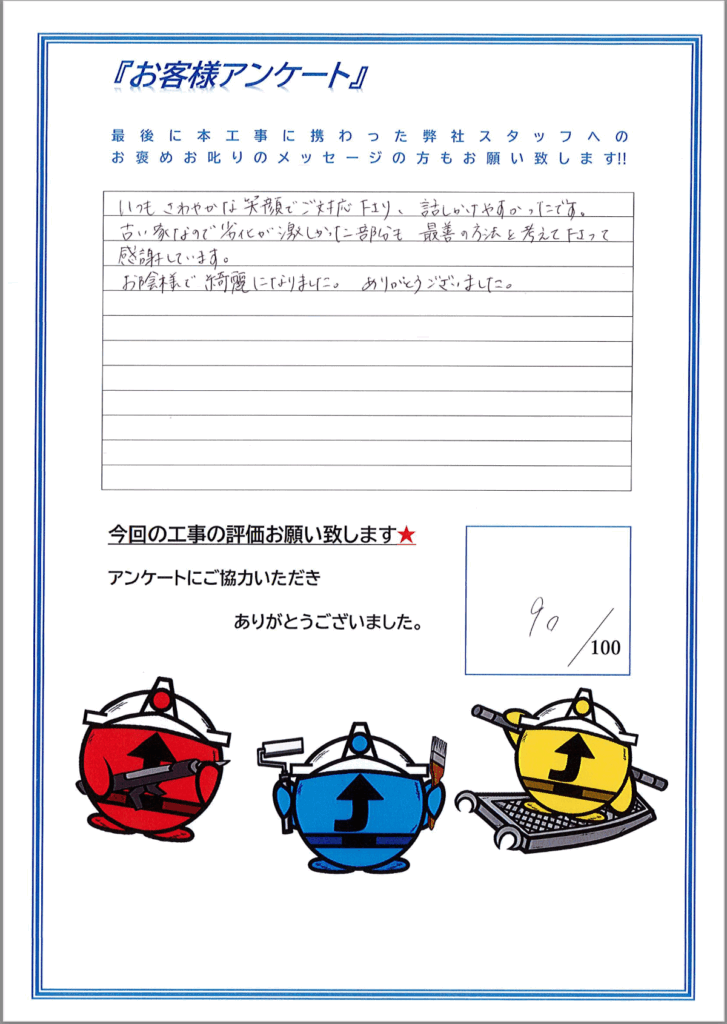 『お客様アンケート』
最後に本工事に携わった弊社スタッフへの
お褒めお叱りのメッセージの方もお願い致します!!
いつも さわやかな 笑顔で ご対応 下さり、 話しかけやすかったです。
古い家なので 劣化が 激しかった部分も 最善の方法を 考えて下さって
感謝しています。
お陰様で 綺麗になりました。 ありがとうございました。
今回の工事の評価お願い致します★
アンケートにご協力いただき
ありがとうございました。
90/100